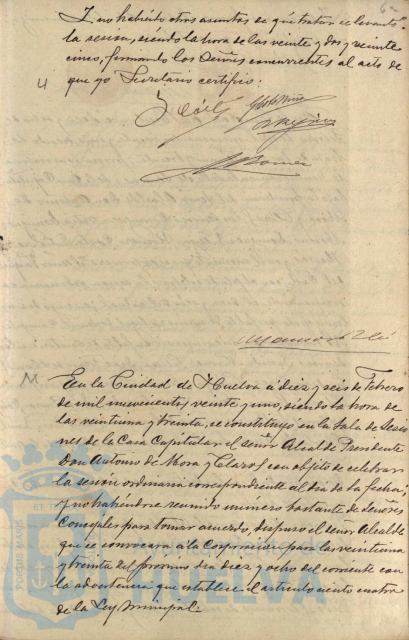 Y no habiendo otros asuntos de qué tratar se levantó
la sesión, siendo la hora de las veinte y dos y veinte
cinco, firmando los Señores concurrentes al acto de
que yo Secretario certifico.
En la Ciudad de Huelva á diez y seis de Febrero
de mil novecientos veinte y uno, siendo la hora de
las veintiuna y treinta, se constituyó en la Sala de Sesio
nes de la Casa Capitular el señor Alcalde Presidente
Don Antonio de Mora y Claros con objeto de celebrar
la sesión ordinaria correspondiente al día de la fecha;
y no habiéndose reunido número bastante de señores
Concejales para tomar acuerdo, dispuso el señor Alcalde
que se convocara á la Corporación para las veintiuna
y treinta del próximo día diez y ocho del corriente con
la advertencia que establece el artículo ciento cuatro
de la Ley Municipal.
PORTUS MARIS
HUELVA